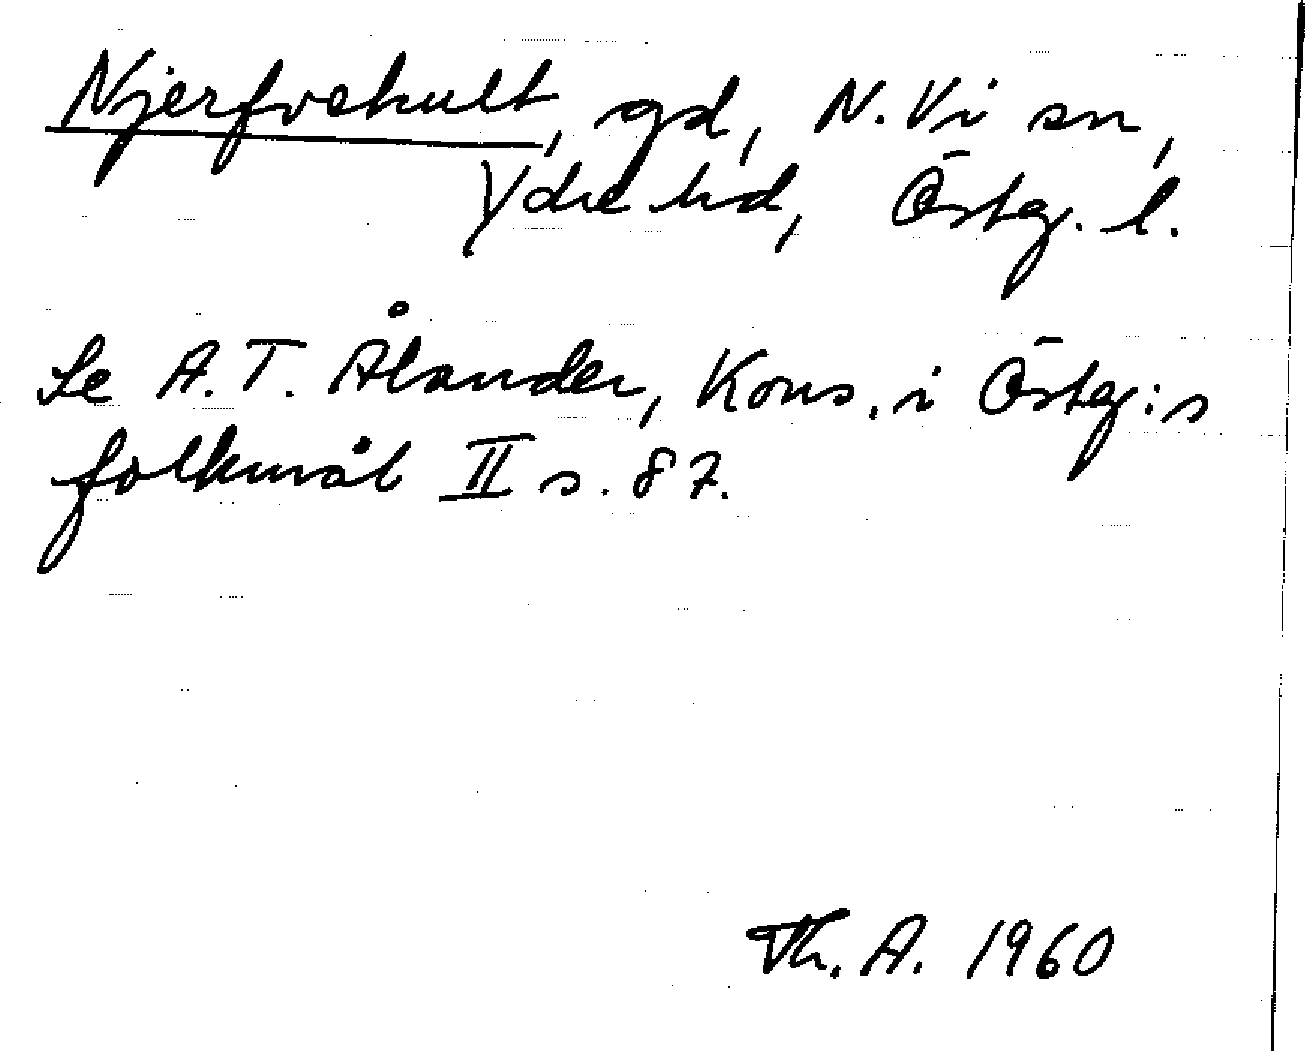 Njerfvehult, gd, N. Vi sn,
Ydre hd, Östg. l.
Se A. T. Ålander, Kons. i Östg:s
folkmål II s. 87.
Th. A. 1960